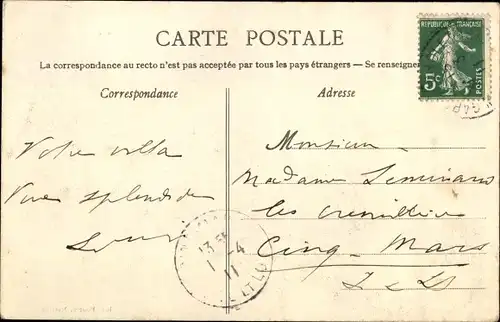 CARTE POSTALE
La correspondance au recto n'est pas acceptée par tous les pays étrangers — Se renseigner
RÉPUBLIQUE FRANÇAISE
5c
POSTES
Correspondance
Adresse
Monsieur
Madame
Votre villa
Vue splendide
les
Cinq-Mars
13
1 -4
11
ET L